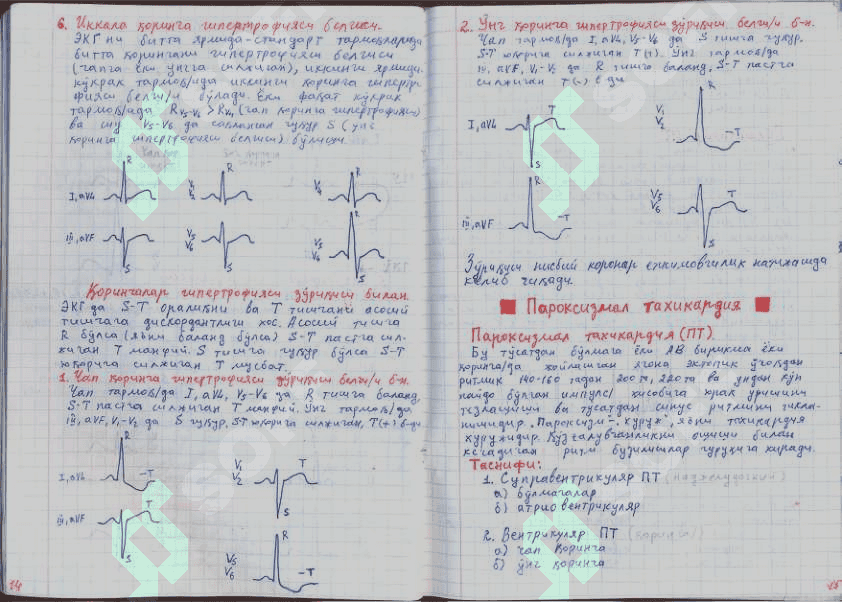 6. Иккала қоринча гипертрофияси белгиси.
ЭКГ ни битта ярмида-стандарт тармоқларида
битта қоринчани гипертрофияси белгиси
(чапга ёки ўнгга силжиган), иккинчи ярмида-
кўкрак тармоқ/ида иккинчи қоринча гипертро-
фияси белги/и бўлади. Ёки фақат кўкрак
тармоқ/ида R V5-V6 > R V4 (чап қоринча гипертрофияси)
ва шу V5-V6 да сақланган чуқур S (ўнг
қоринча гипертрофияси белгиси) бўлиши.
R R R
I, aVL V1 V2 V4
III, aVF V5 V6 V5 V6 R
Қоринчалар гипертрофияси зўриқиш билан.
ЭКГ да S-T оралиқни ва T тишчани асосий
тишчага дискордантлиги хос. Асосий тишча
R бўлса (яъни баланд бўлса) S-T пастга сил-
жиган T манфий. S тишча чуқур бўлса S-T
юқорига силжиган T мусбат.
1. Чап қоринча гипертрофияси зўриқиш белги/и б-н.
Чап тармоқ/да I, aVL, V5-V6 да R тишча баланд,
S-T пастга силжиган T манфий. Ўнг тармоқ/да
III, aVF, V1-V2 да S чуқур, S-T юқорига силжиган, T(+) б-ди.
I, aVL R -T V1 V2 T S
III, aVF T S V5 V6 R -T
14
2. Ўнг қоринча гипертрофияси зўриқиш белги/и б-н.
Чап тармоқ/да I, aVL, V5-V6 да S тишча чуқур.
S-T юқорига силжиган T(+). Ўнг тармоқ/да
III, aVF, V1-V2 да R тишча баланд, S-T пастга
силжиган T(-) б-ди.
I, aVL T S V1 V2 R -T
III, aVF R -T V5 V6 T S
Зўриқиш нисбий коронар етишмовчилик натижасида
келиб чиқади.
Пароксизмал тахикардия
Пароксизмал тахикардия (ПТ).
Бу тўсатдан бўлмача ёки АВ бирикма ёки
қоринча/да жойлашган ягона эктопик ўчоқдан
ритмик 140-160 тадан 200 та, 220 та ва ундан кўп
пайдо бўлган импульс/ ҳисобига юрак уришини
тезлашуши ва тўсатдан синус ритмини тикла-
нишидир. „Пароксизм"-„хуруж", яъни тахикардия
хуружидир. Қўзғалувчанликни ошиши билан
кечадиган ритм бузилишлар гуруҳига киради.
Таснифи:
1. Суправентрикуляр ПТ (наджелудочкин)
а) бўлмачалар
б) атриовентрикуляр
2. Вентрикуляр ПТ (қоринча)
а) чап қоринча
б) ўнг қоринча
15